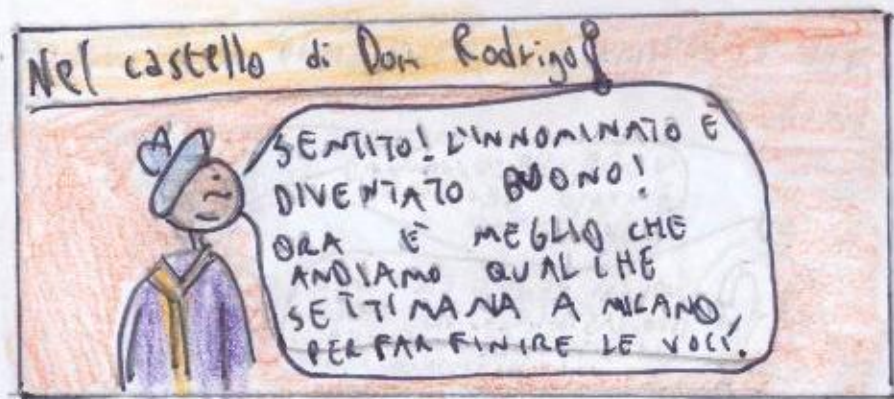 Nel castello di Don Rodrigo
SENTITO! L'INNOMINATO È
DIVENTATO BUONO!
ORA È MEGLIO CHE
ANDIAMO QUALCHE
SETTIMANA A MILANO,
PER FAR FINIRE LE VOCI.